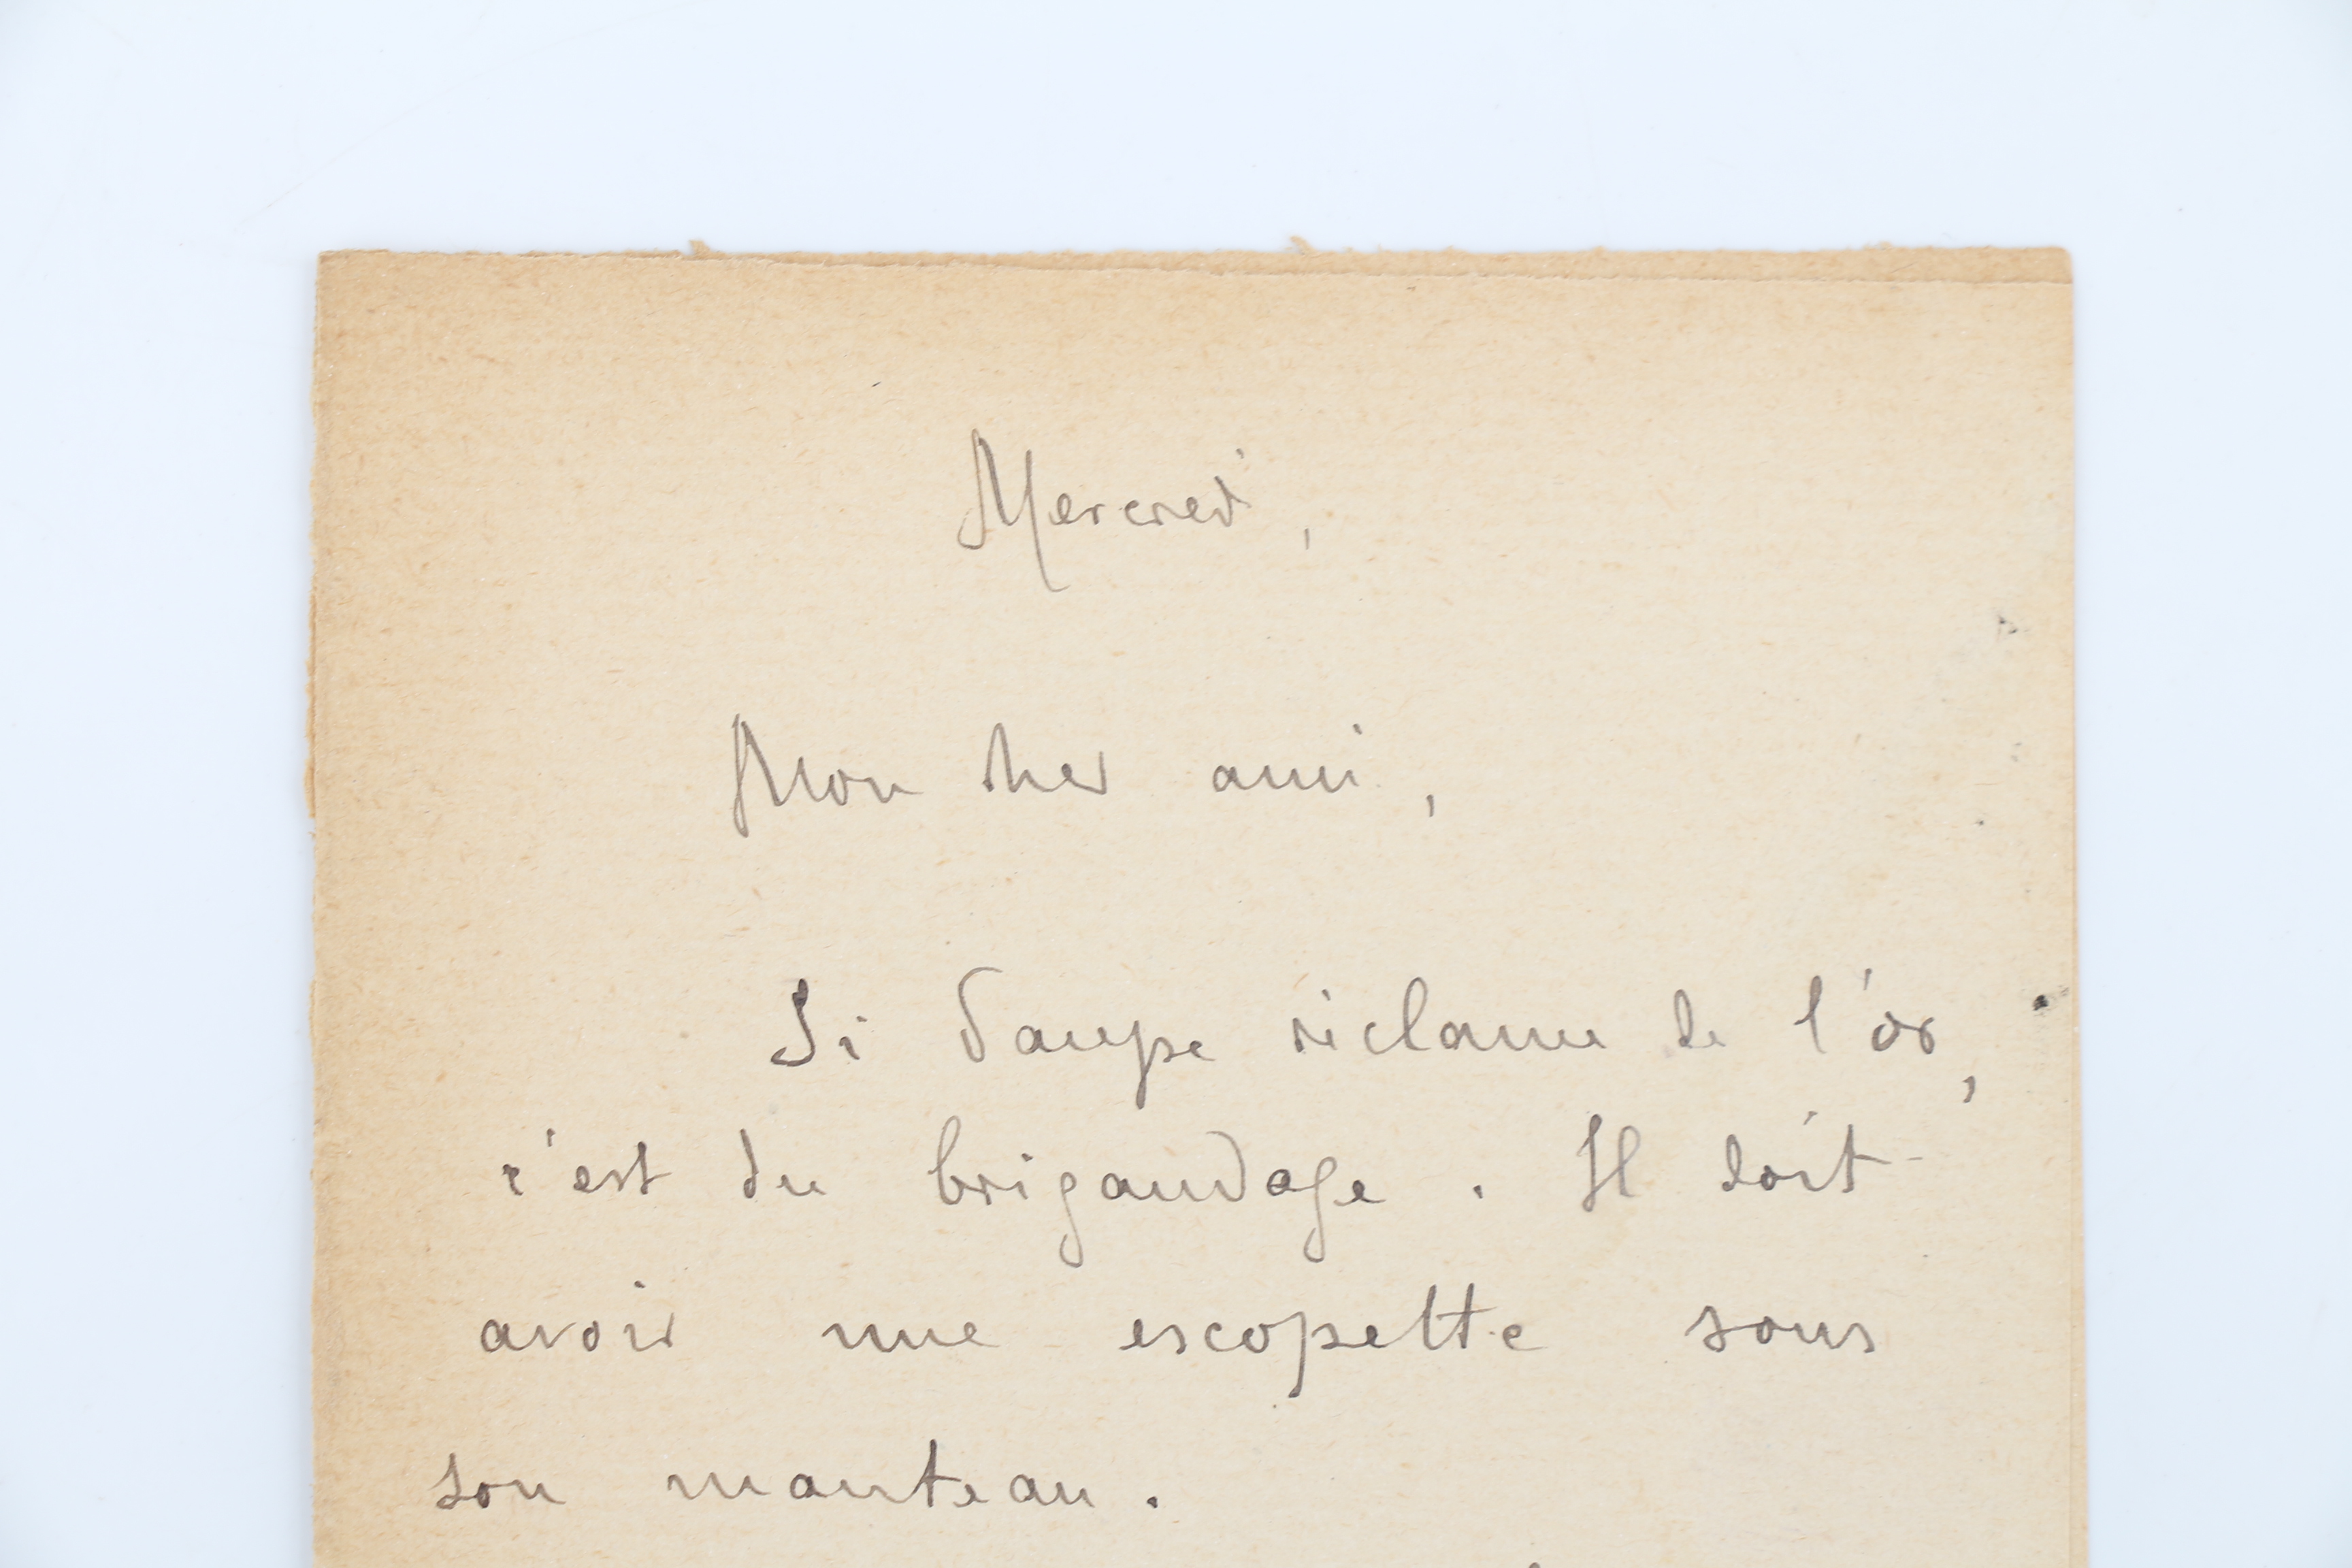 Mercredi,
Mon cher ami,
Si Daupe réclame de l'or,
c'est du brigandage. Il doit
avoir une escopette sous
son manteau.